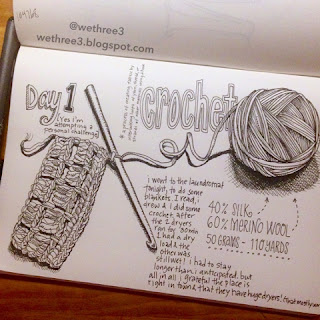 @wethree3
wethree3.blogspot.com
Day 1
(Yes I'm
attempting a
personal challenge)
crochet
i went to the laundromat
tonight, to do some
blankets. I read, i
drew & i did some
crochet after
the 2 dryers
ran for 30min
I had a dry
load & the
other was
still wet! i had to stay
longer than i anticipated, but
all in all i grateful the place is
right in town & that they have huge dryers!
that mostly work
40% SILK
60% MERINO WOOL
50 GRAMS - 110 YARDS